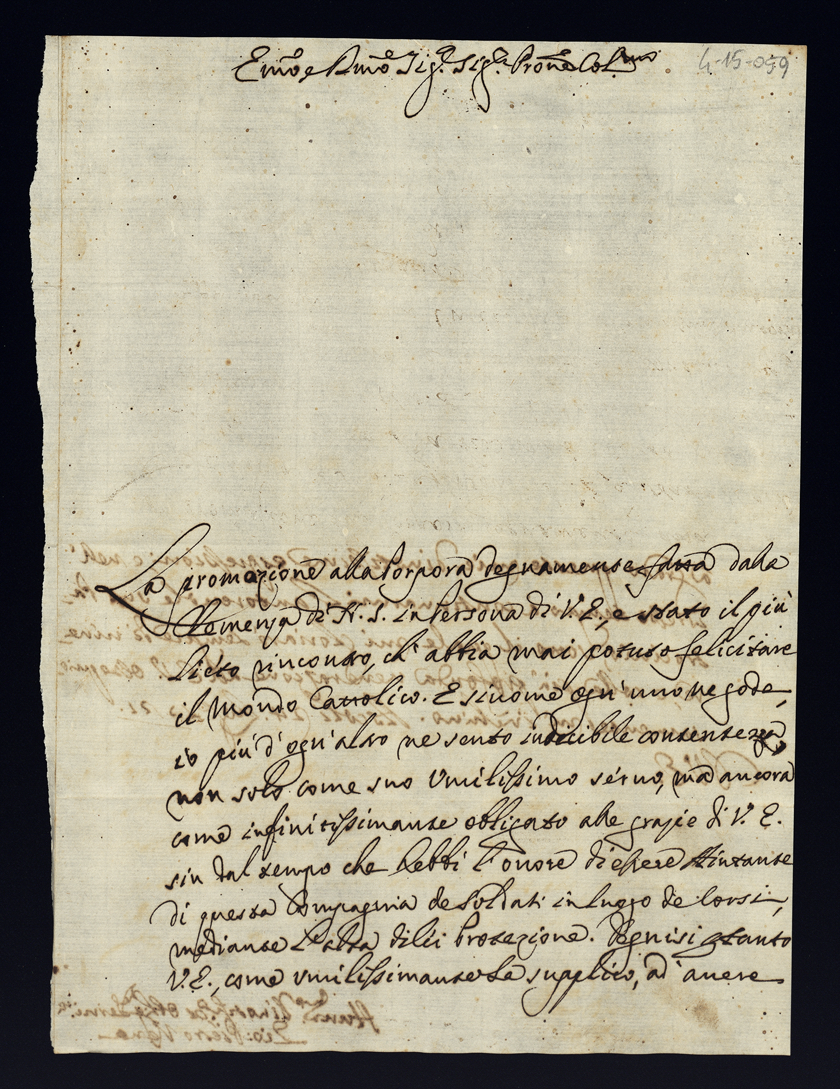 Emo e Rmo Sig.r Sig.r Prone Col.mo
4-15-059
La promozione alla Porpora degnamente fatta dalla
Clemenza di N. S. in Persona di V. E., è stato il più
lieto rincontro, ch' abbia mai potuto felicitare
il Mondo Cattolico. E si come ogn' uno ne gode,
io più d'ogn' altro ne sento indicibile contentezza,
non solo come suo Vmilissimo seruo, mà ancora
come infinitissimamente obligato alle grazie di V. E.
sin dal tempo che hebbi l'onore di essere Aiutante
di questa Compagnia de Soldati in luogo de Corsi,
mediante l'alta di lei Protezione. Degnisi
V. E., come vmilissimamente La supplico, ad auere